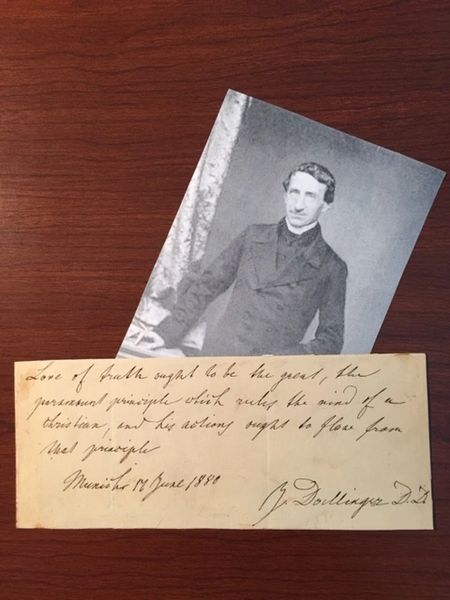 Love of truth ought to be the great, the
paramount principle which rules the mind of a
Christian, and his actions ought to flow from
that principle
Munich 17 June 1880
Döllinger D.D.